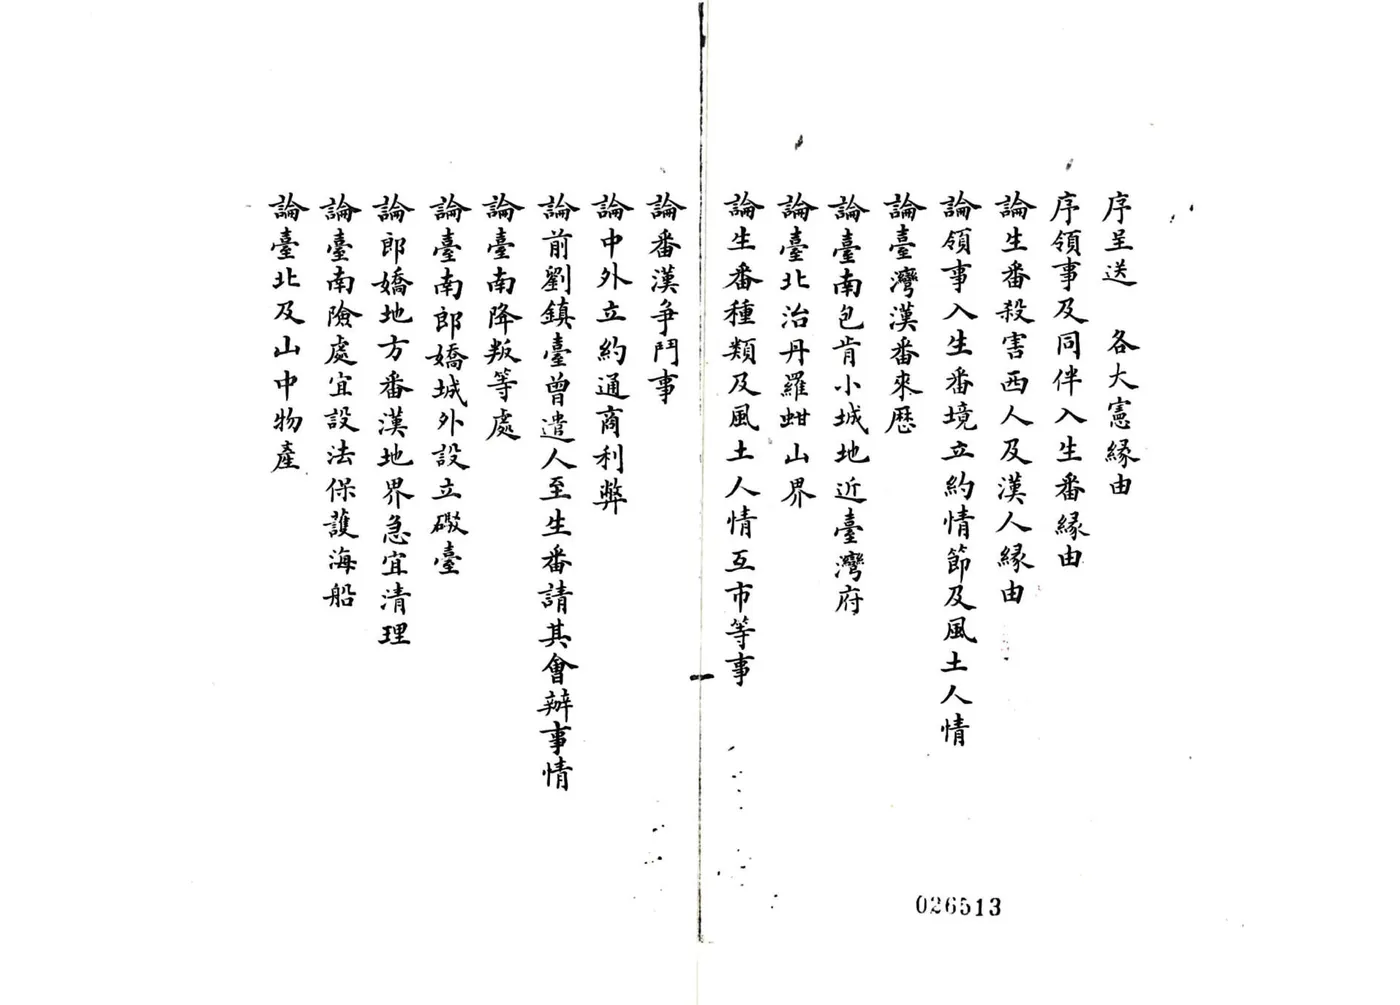 序呈送　各大憲緣由
序領事及同伴入生番緣由
論生番殺害西人及漢人緣由
論領事入生番境立約情節及風土人情
論臺灣漢番來歷
論臺南包肯小城地近臺灣府
論臺北治丹羅蚶山界
論生番種類及風土人情互市等事
論番漢爭鬥事
論中外立約通商利弊
論前劉鎮臺曾遣人至生番請其會辦事情
論臺南降叛等處
論臺南郎嬌城外設立礮臺
論郎嬌地方番漢地界急宜清理
論臺南險處宜設法保護海船
論臺北及山中物產
026513